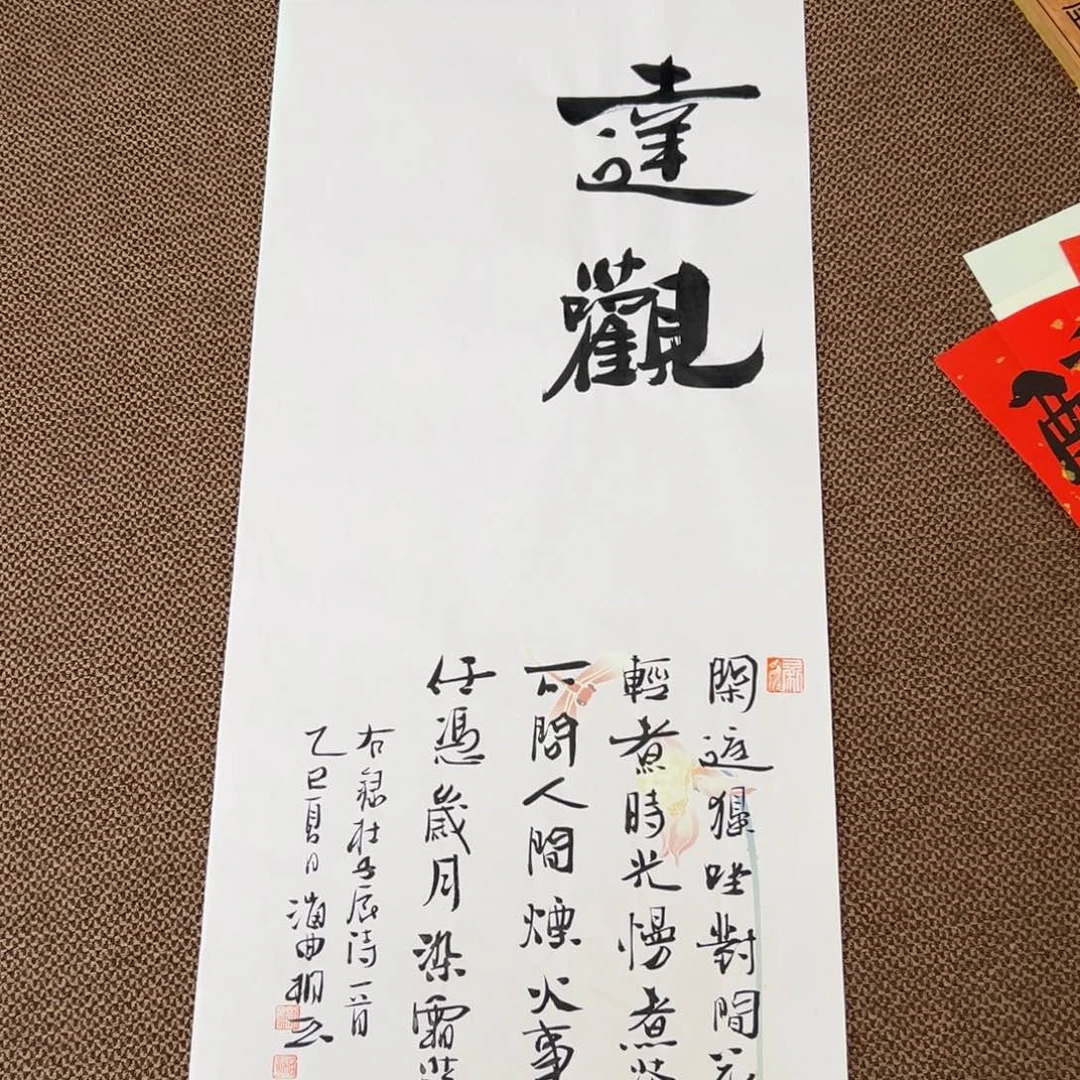 達觀
閑庭獨坐對閒花
輕煮時光慢煮茶
不問人間煙火事
任憑歲月染霜華
右錄杜辰詩一首
乙巳夏日